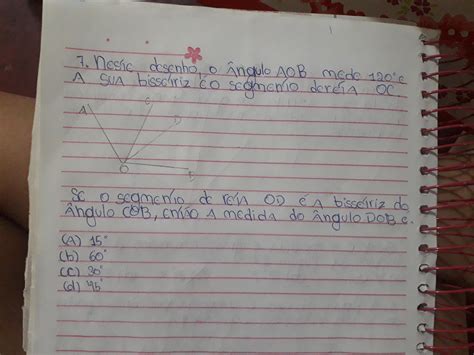 7. Nesse desenho, o ângulo AOB mede 120° e
A sua bissetriz é o segmento de reta OC
A
C
D
O
B
Se o segmento de reta OD é a bissetriz do
ângulo COB, então a medida do ângulo DOB é.
(A) 15°
(b) 60°
(c) 30°
(d) 45°